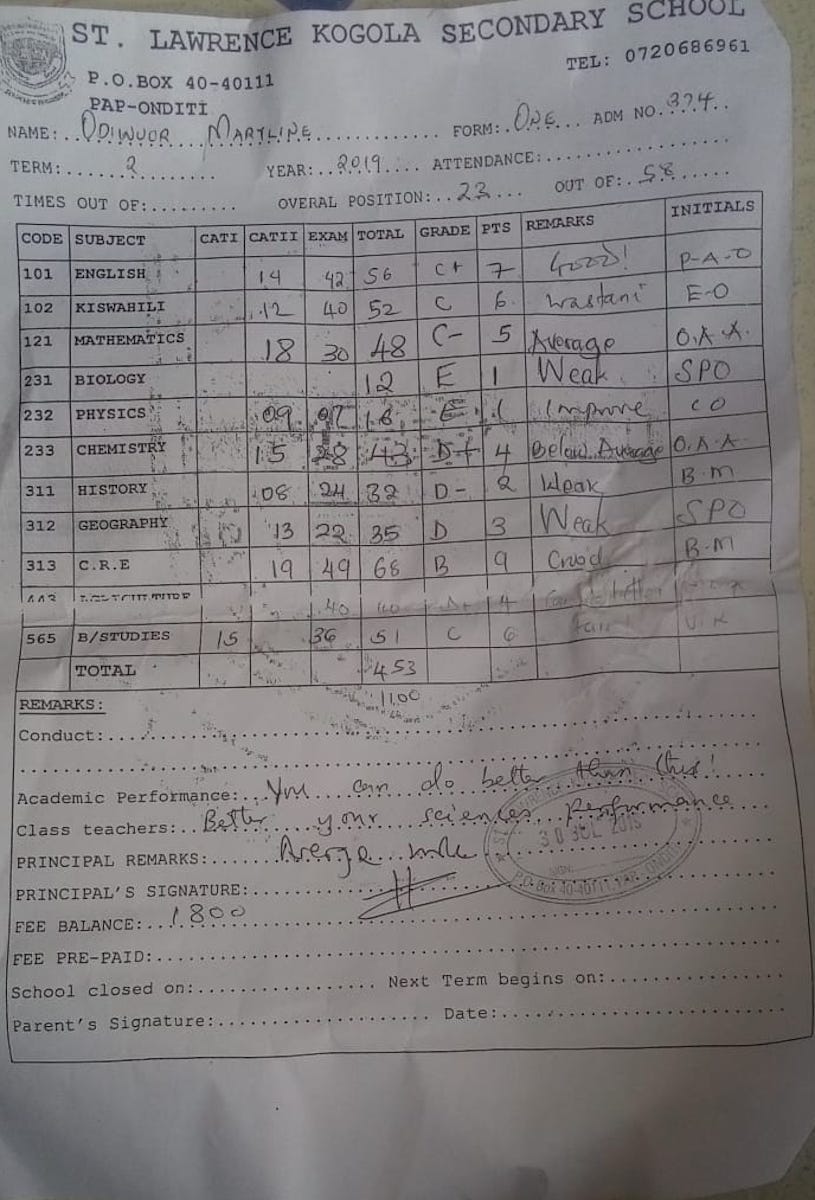 ST. LAWRENCE KOGOLA SECONDARY SCHOOL
P.O.BOX 40-40111 TEL: 0720686961
PAP-ONDITI
NAME: ODIWUOR MARYLINE FORM: ONE ADM NO. 374
TERM: 2 YEAR: 2019 ATTENDANCE:
TIMES OUT OF: OVERAL POSITION: 23 OUT OF: 58
CODE SUBJECT CATI CATII EXAM TOTAL GRADE PTS REMARKS INITIALS
101 ENGLISH 14 42 56 C+ 7 Good! P-A-O
102 KISWAHILI 12 40 52 C 6 Wastani E-O
121 MATHEMATICS 18 30 48 C- 5 Average O.A.A.
231 BIOLOGY 12 E 1 Weak SPO
232 PHYSICS 09 16 E 1 Improve CO
233 CHEMISTRY 15 28 43 D+ 4 Below Average O.A.A
311 HISTORY 08 24 32 D- 2 Weak B.M
312 GEOGRAPHY 13 22 35 D 3 Weak SPO
313 C.R.E 19 49 68 B 9 Good B.M
443 40 40 D+ 4
565 B/STUDIES 15 36 51 C 6 Fair V.K
TOTAL 453
1100
REMARKS:
Conduct:
Academic Performance: You can do better than this!
Class teachers: Better your sciences performance
PRINCIPAL REMARKS: Averge
30 JUL 2019
SIGN:
P.O. Box 40-40111, PAP-ONDITI
PRINCIPAL'S SIGNATURE:
FEE BALANCE: 1800
FEE PRE-PAID:
School closed on: Next Term begins on:
Parent's Signature: Date: